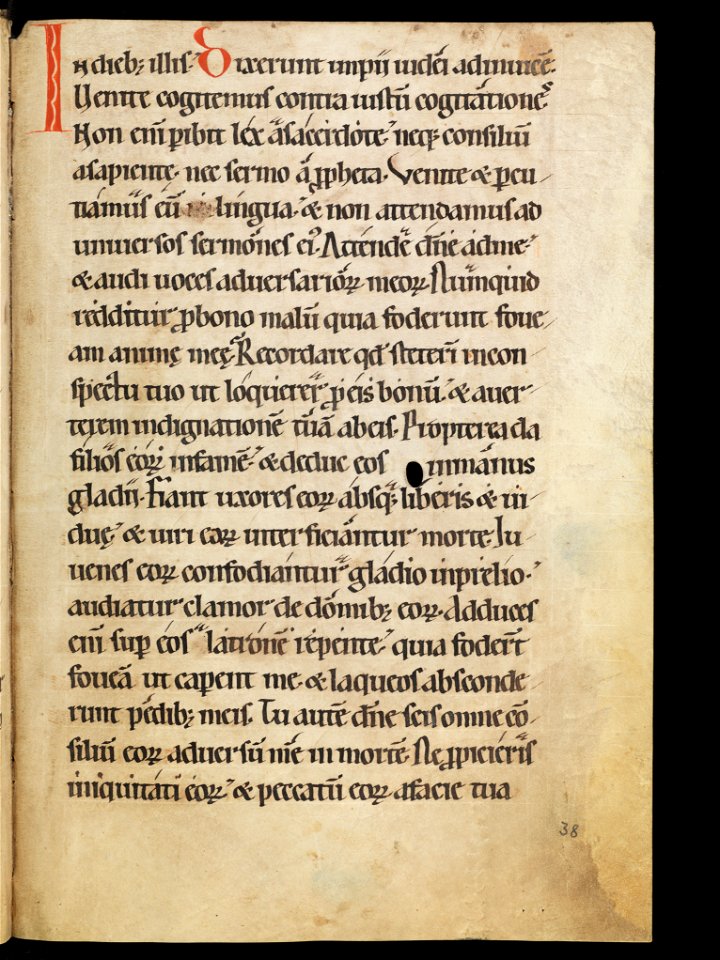 In dieb; illis. Dixerunt impii iudei adinuicē.
Uenite cogitemus contra iustū cogitationē.
Non enī ꝑibit lex asacerdote. neq; consiliū
asapiente. nec sermo a ꝓpheta. Venite & ꝑcu
tiamus eū lingua. & non attendamus ad
uniuersos sermones ei᾽. Attende dn̄e adme.
& audi uoces aduersarioꝝ meoꝝ. Nunquid
redditur ꝓbono malū quia foderunt foue
am animę meę. Recordare qđ steterī incon
spectu tuo ut loquerer ꝓ eis bonū. & auer
terem indignationē tuā abeis. Propterea da
filios eoꝝ infamē. & deduc eos inmanus
gladii. Fiant uxores eoꝝ absq; liberis & ui
duę. & uiri eoꝝ interficiantur morte. Iu
uenes eoꝝ confodiantur gladio inprelio.
audiatur clamor de domib; eoꝝ. Adduces
enī suꝑ eos latronē repente. quia foder̄t
foueā ut caperent me. & laqueos absconde
runt pedib; meis. Tu autē dn̄e scis omne cō
siliū eoꝝ aduersū me in mortē. Ne ꝓpicieris
iniquitati eoꝝ. & peccatū eoꝝ afacie tua
38